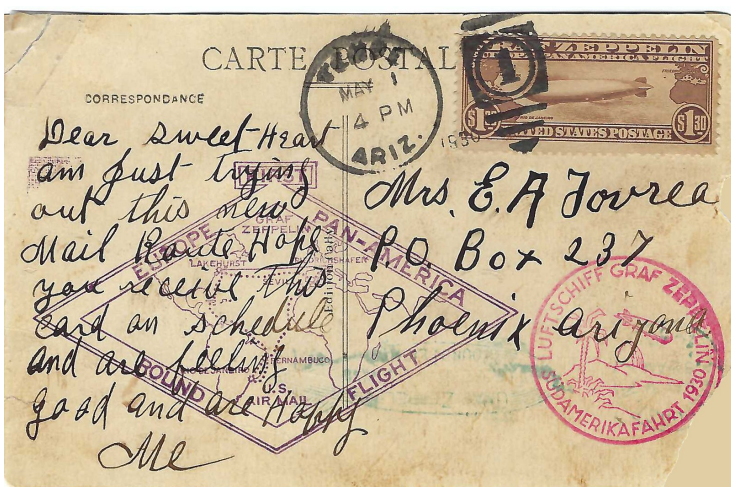 CARTE POSTAL
CORRESPONDANCE
MAY 1
4 PM
ARIZ.
1930
GRAF ZEPPELIN
PAN-AMERICA FLIGHT
$1.30
$1.30
UNITED STATES POSTAGE
1
Dear Sweet Heart
am Just trying
out this new
Mail Route Hope
you receive this
card on schedule
and are feeling
good and are Happy
Me
Mrs. E. A Tovrea
P.O. Box 237
Phoenix arizona
EUROPE
PAN-AMERICA
ROUND
FLIGHT
GRAF
ZEPPELIN
LAKEHURST
FRIEDRICHSHAFEN
SEVILLE
PERNAMBUCO
RIO DE JANEIRO
U.S.
AIR MAIL
LUFTSCHIFF GRAF ZEPPELIN
SÜDAMERIKAFAHRT 1930